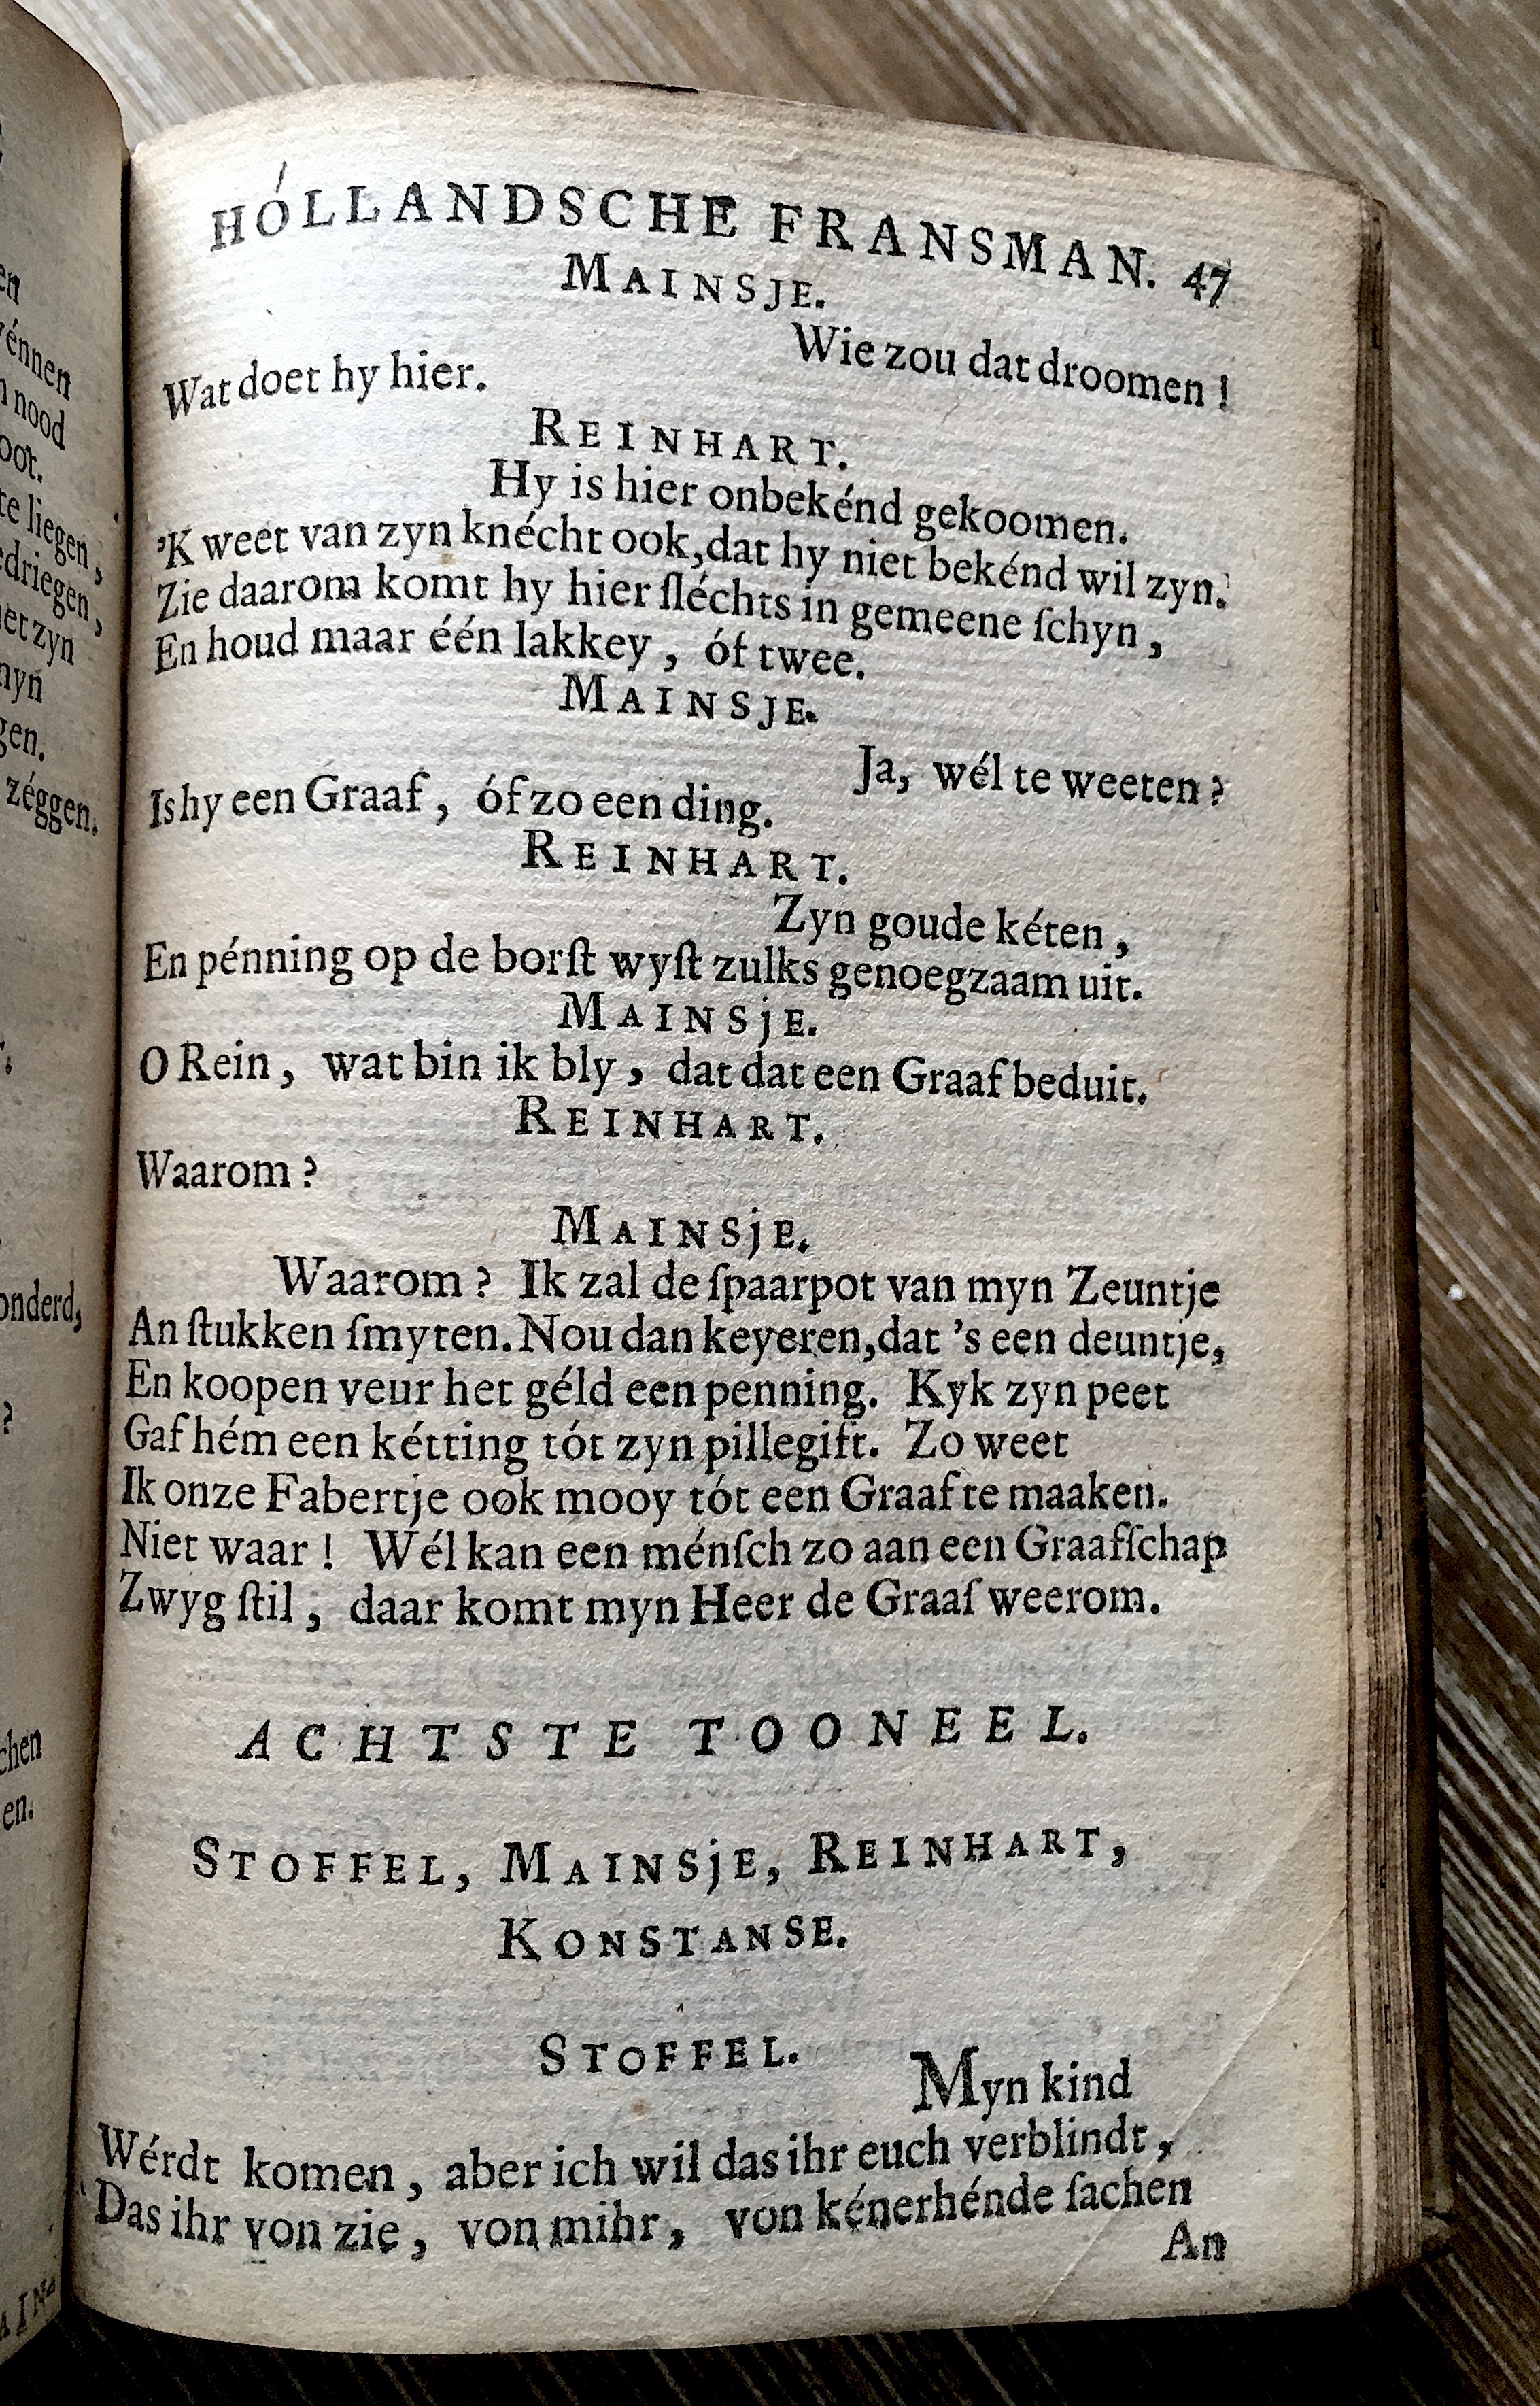 HÓLLANDSCHE FRANSMAN. 47
MAINSJE.
Wie zou dat droomen!
Wat doet hy hier.
REINHART.
Hy is hier onbekénd gekoomen.
'K weet van zyn knécht ook, dat hy niet bekénd wil zyn.
Zie daarom komt hy hier ſléchts in gemeene ſchyn,
En houd maar één lakkey, óf twee.
MAINSJE.
Ja, wél te weeten?
Is hy een Graaf, óf zo een ding.
REINHART.
Zyn goude kéten,
En pénning op de borſt wyſt zulks genoegzaam uit.
MAINSjE.
O Rein, wat bin ik bly, dat dat een Graaf beduit.
REINHART.
Waarom?
MAINSjE.
Waarom? Ik zal de ſpaarpot van myn Zeuntje
An ſtukken ſmyten. Nou dan keyeren, dat 's een deuntje,
En koopen veur het géld een penning. Kyk zyn peet
Gaf hém een kétting tót zyn pillegift. Zo weet
Ik onze Fabertje ook mooy tót een Graaf te maaken.
Niet waar! Wél kan een ménſch zo aan een Graafſchap
Zwyg ſtil, daar komt myn Heer de Graaſ weerom.
ACHTSTE TOONEEL.
STOFFEL, MAINSjE, REINHART,
KONSTANSE.
STOFFEL.
Myn kind
Wérdt komen, aber ich wil das ihr euch verblindt,
Das ihr von zie, von mihr, von kénerhénde ſachen
An
énnen
nood
oot.
te liegen,
edriegen,
et zyn
myn
gen.
zéggen.
onderd,
?
chen
en.